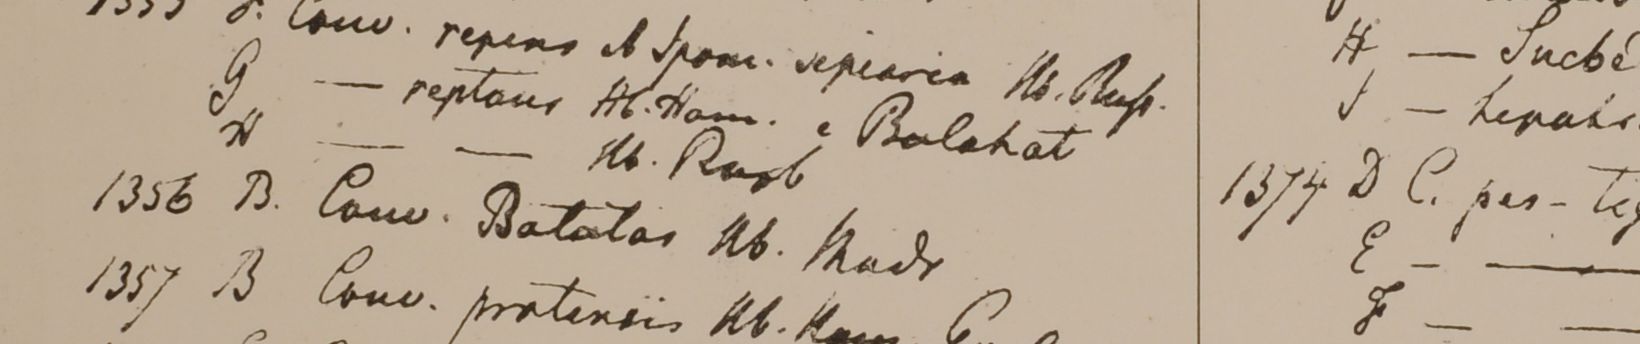 1355 F. Conv. repens & Ipom. sepiaria Hb. Russ.
G — reptans Hb. Ham. e Balahat
H — — Hb. Roxb
1356 B. Conv. Batatas Hb. Madr
1357 B Conv. Hb. Ham.
H — Sucbé
J —
1374 D C. pes-tig
E — —
F — —